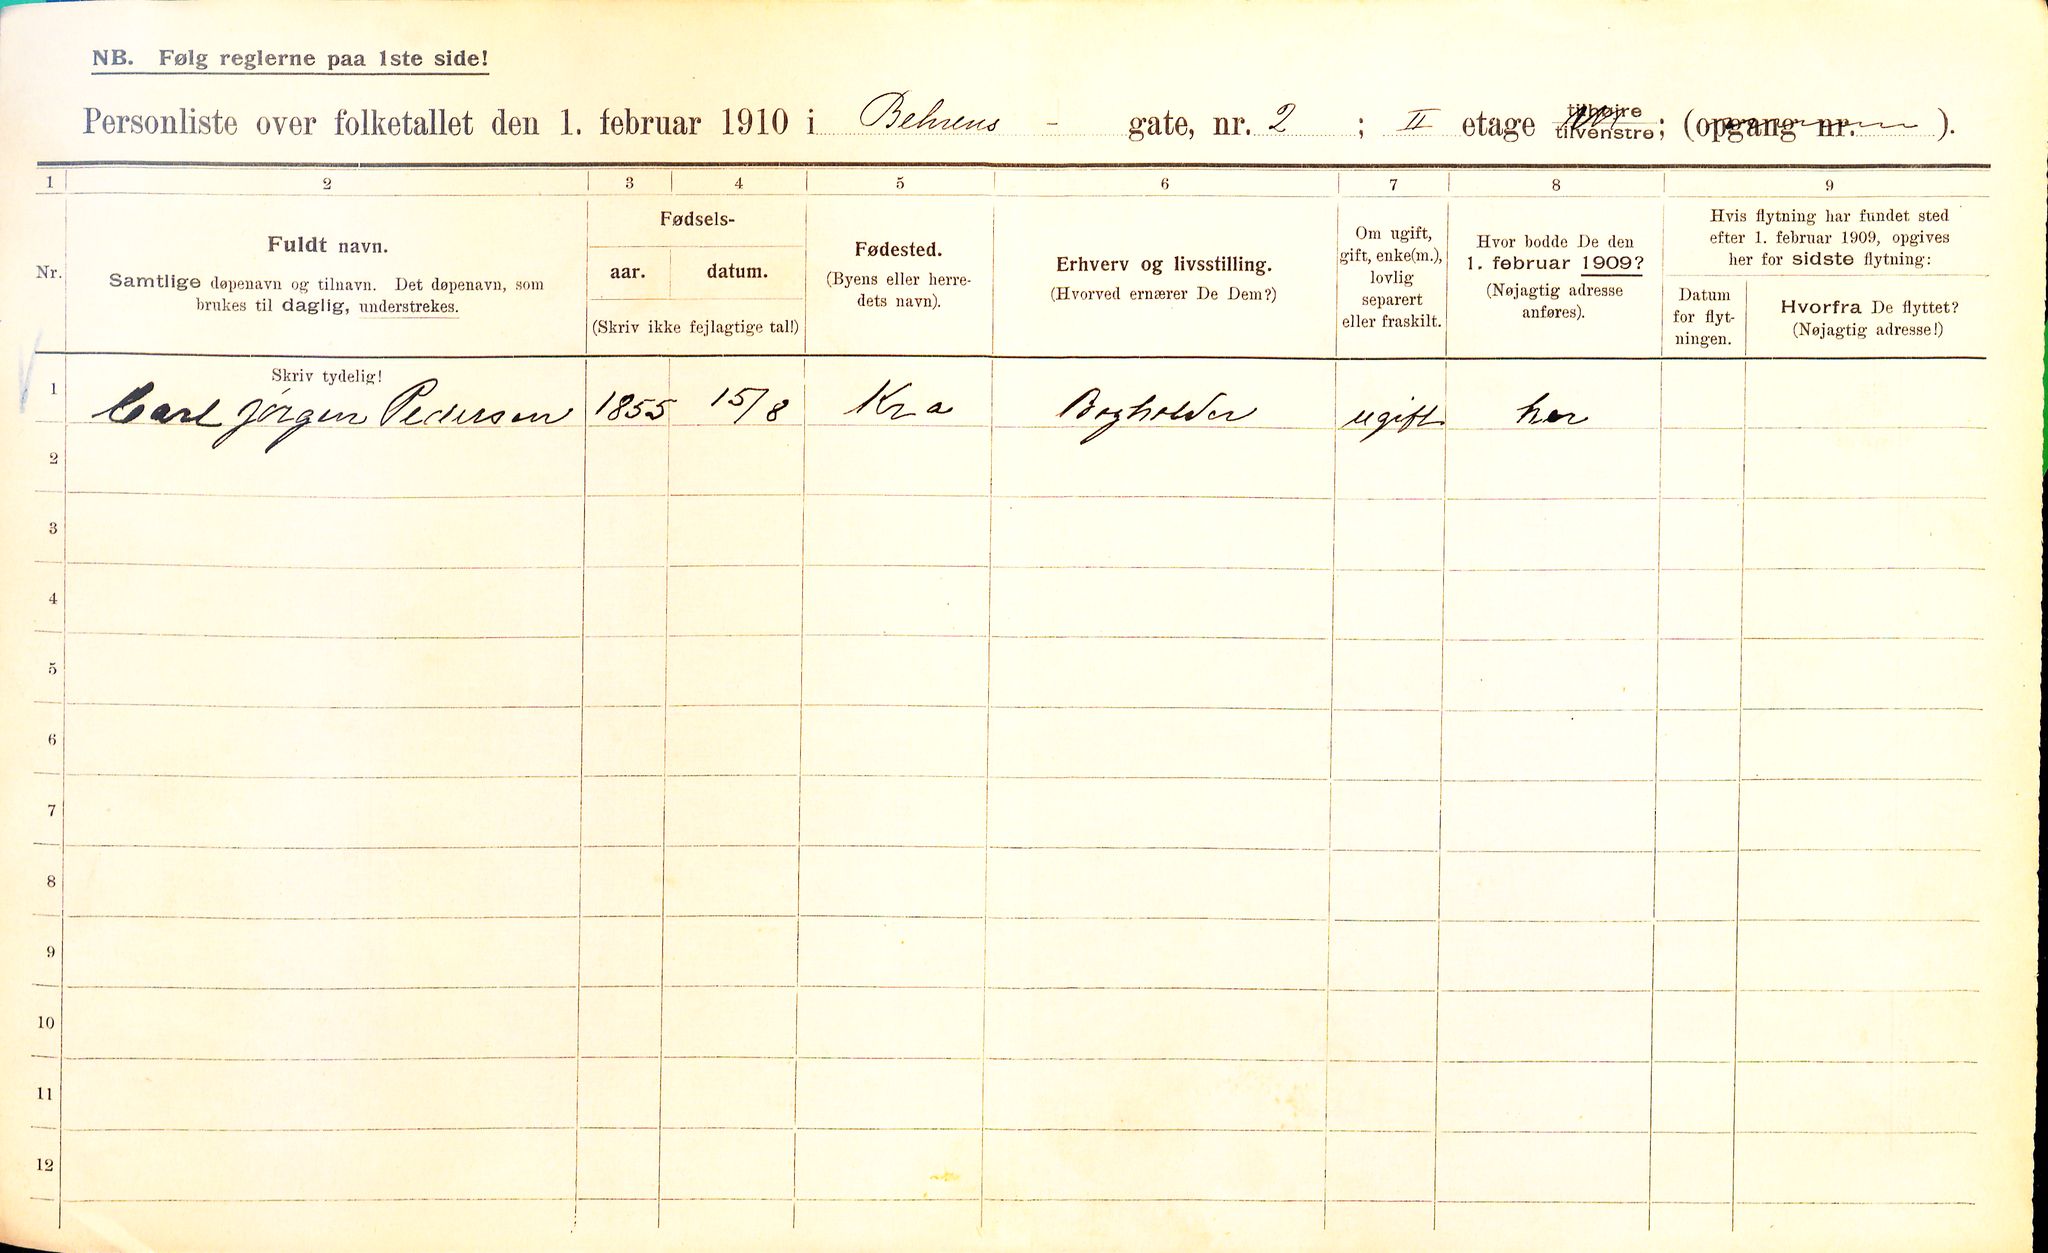 NB. Følg reglerne paa 1ste side!
Personliste over folketallet den 1. februar 1910 i Behrens - gate, nr. 2 ; II etage tilhøjre tilvenstre; (opgang nr. ).
1 2 3 4 5 6 7 8 9
Nr.
Fuldt navn.
Samtlige døpenavn og tilnavn. Det døpenavn, som
brukes til daglig, understrekes.
Fødsels-
aar. datum.
(Skriv ikke fejlagtige tal!)
Fødested.
(Byens eller herre-
dets navn).
Erhverv og livsstilling.
(Hvorved ernærer De Dem?)
Om ugift,
gift, enke(m.),
lovlig
separert
eller fraskilt.
Hvor bodde De den
1. februar 1909?
(Nøjagtig adresse
anføres).
Hvis flytning har fundet sted
efter 1. februar 1909, opgives
her for sidste flytning:
Datum
for flyt-
ningen.
Hvorfra De flyttet?
(Nøjagtig adresse!)
Skriv tydelig!
1 Carl Jørgen Pedersen 1855 15/8 Kra Bogholder ugift her
2
3
4
5
6
7
8
9
10
11
12